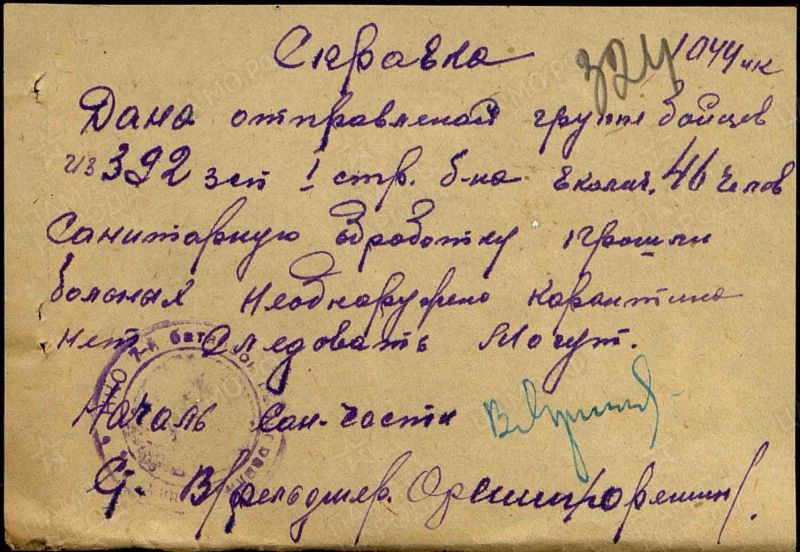 Справка 324 1044 ик
Дана отправленой группе бойцев
из 392 зсп 1 стр. б-на в колич. 46 челов
Санитарную обработку прошли
больных необнаружено карантина
нет Следовать Могут.
Началь Сан-части
Ст. В/фельдшер.